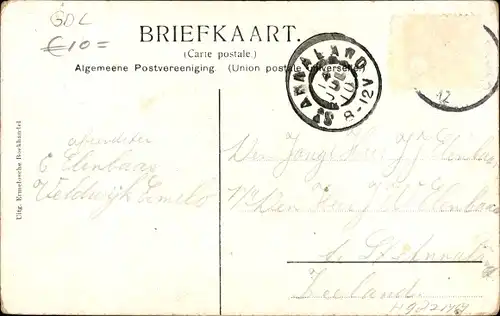 GDL
€10=
BRIEFKAART.
(Carte postale.)
Algemeene Postvereeniging (Union postale universelle)
ST ANNALAND
8-12V
12
Uitg. Ermelosche Boekhandel
afzendster
E Elenbaas
Veldwijk Ermelo
Den Jonge Heer J J Elenbaas
Den Heer Elenbaas
te St Annaland
Zeeland